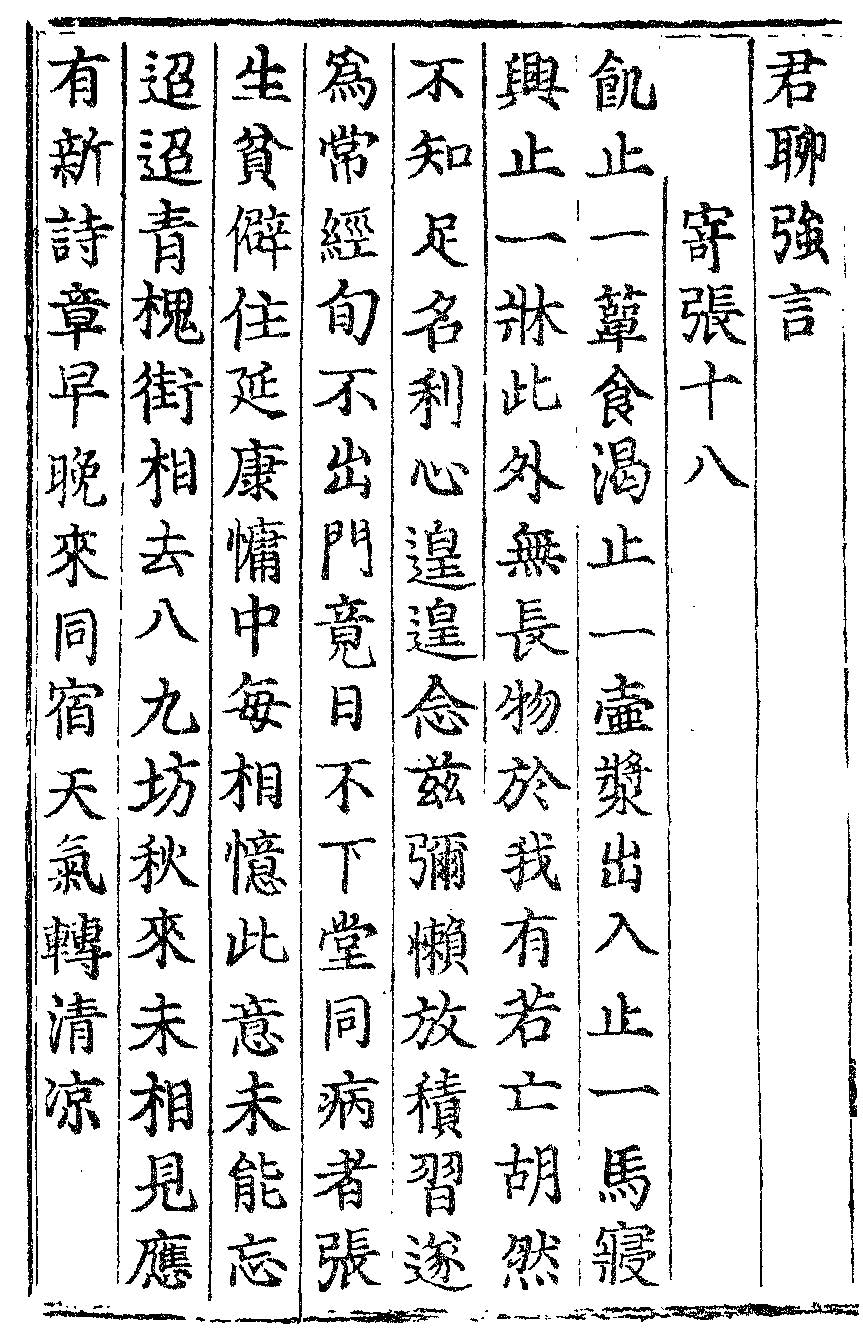 君聊強言
寄張十八
飢止一簞食渴止一壷漿出入止一馬寢
興止一牀此外無長物於我有若亡胡然
不知足名利心遑遑念兹彌懶放積習遂
爲常經旬不出門竟日不下堂同病者張
生貧僻住延康慵中每相憶此意未能忘
迢迢青槐街相去八九坊秋來未相見應
有新詩章早晚來同宿天氣轉清凉